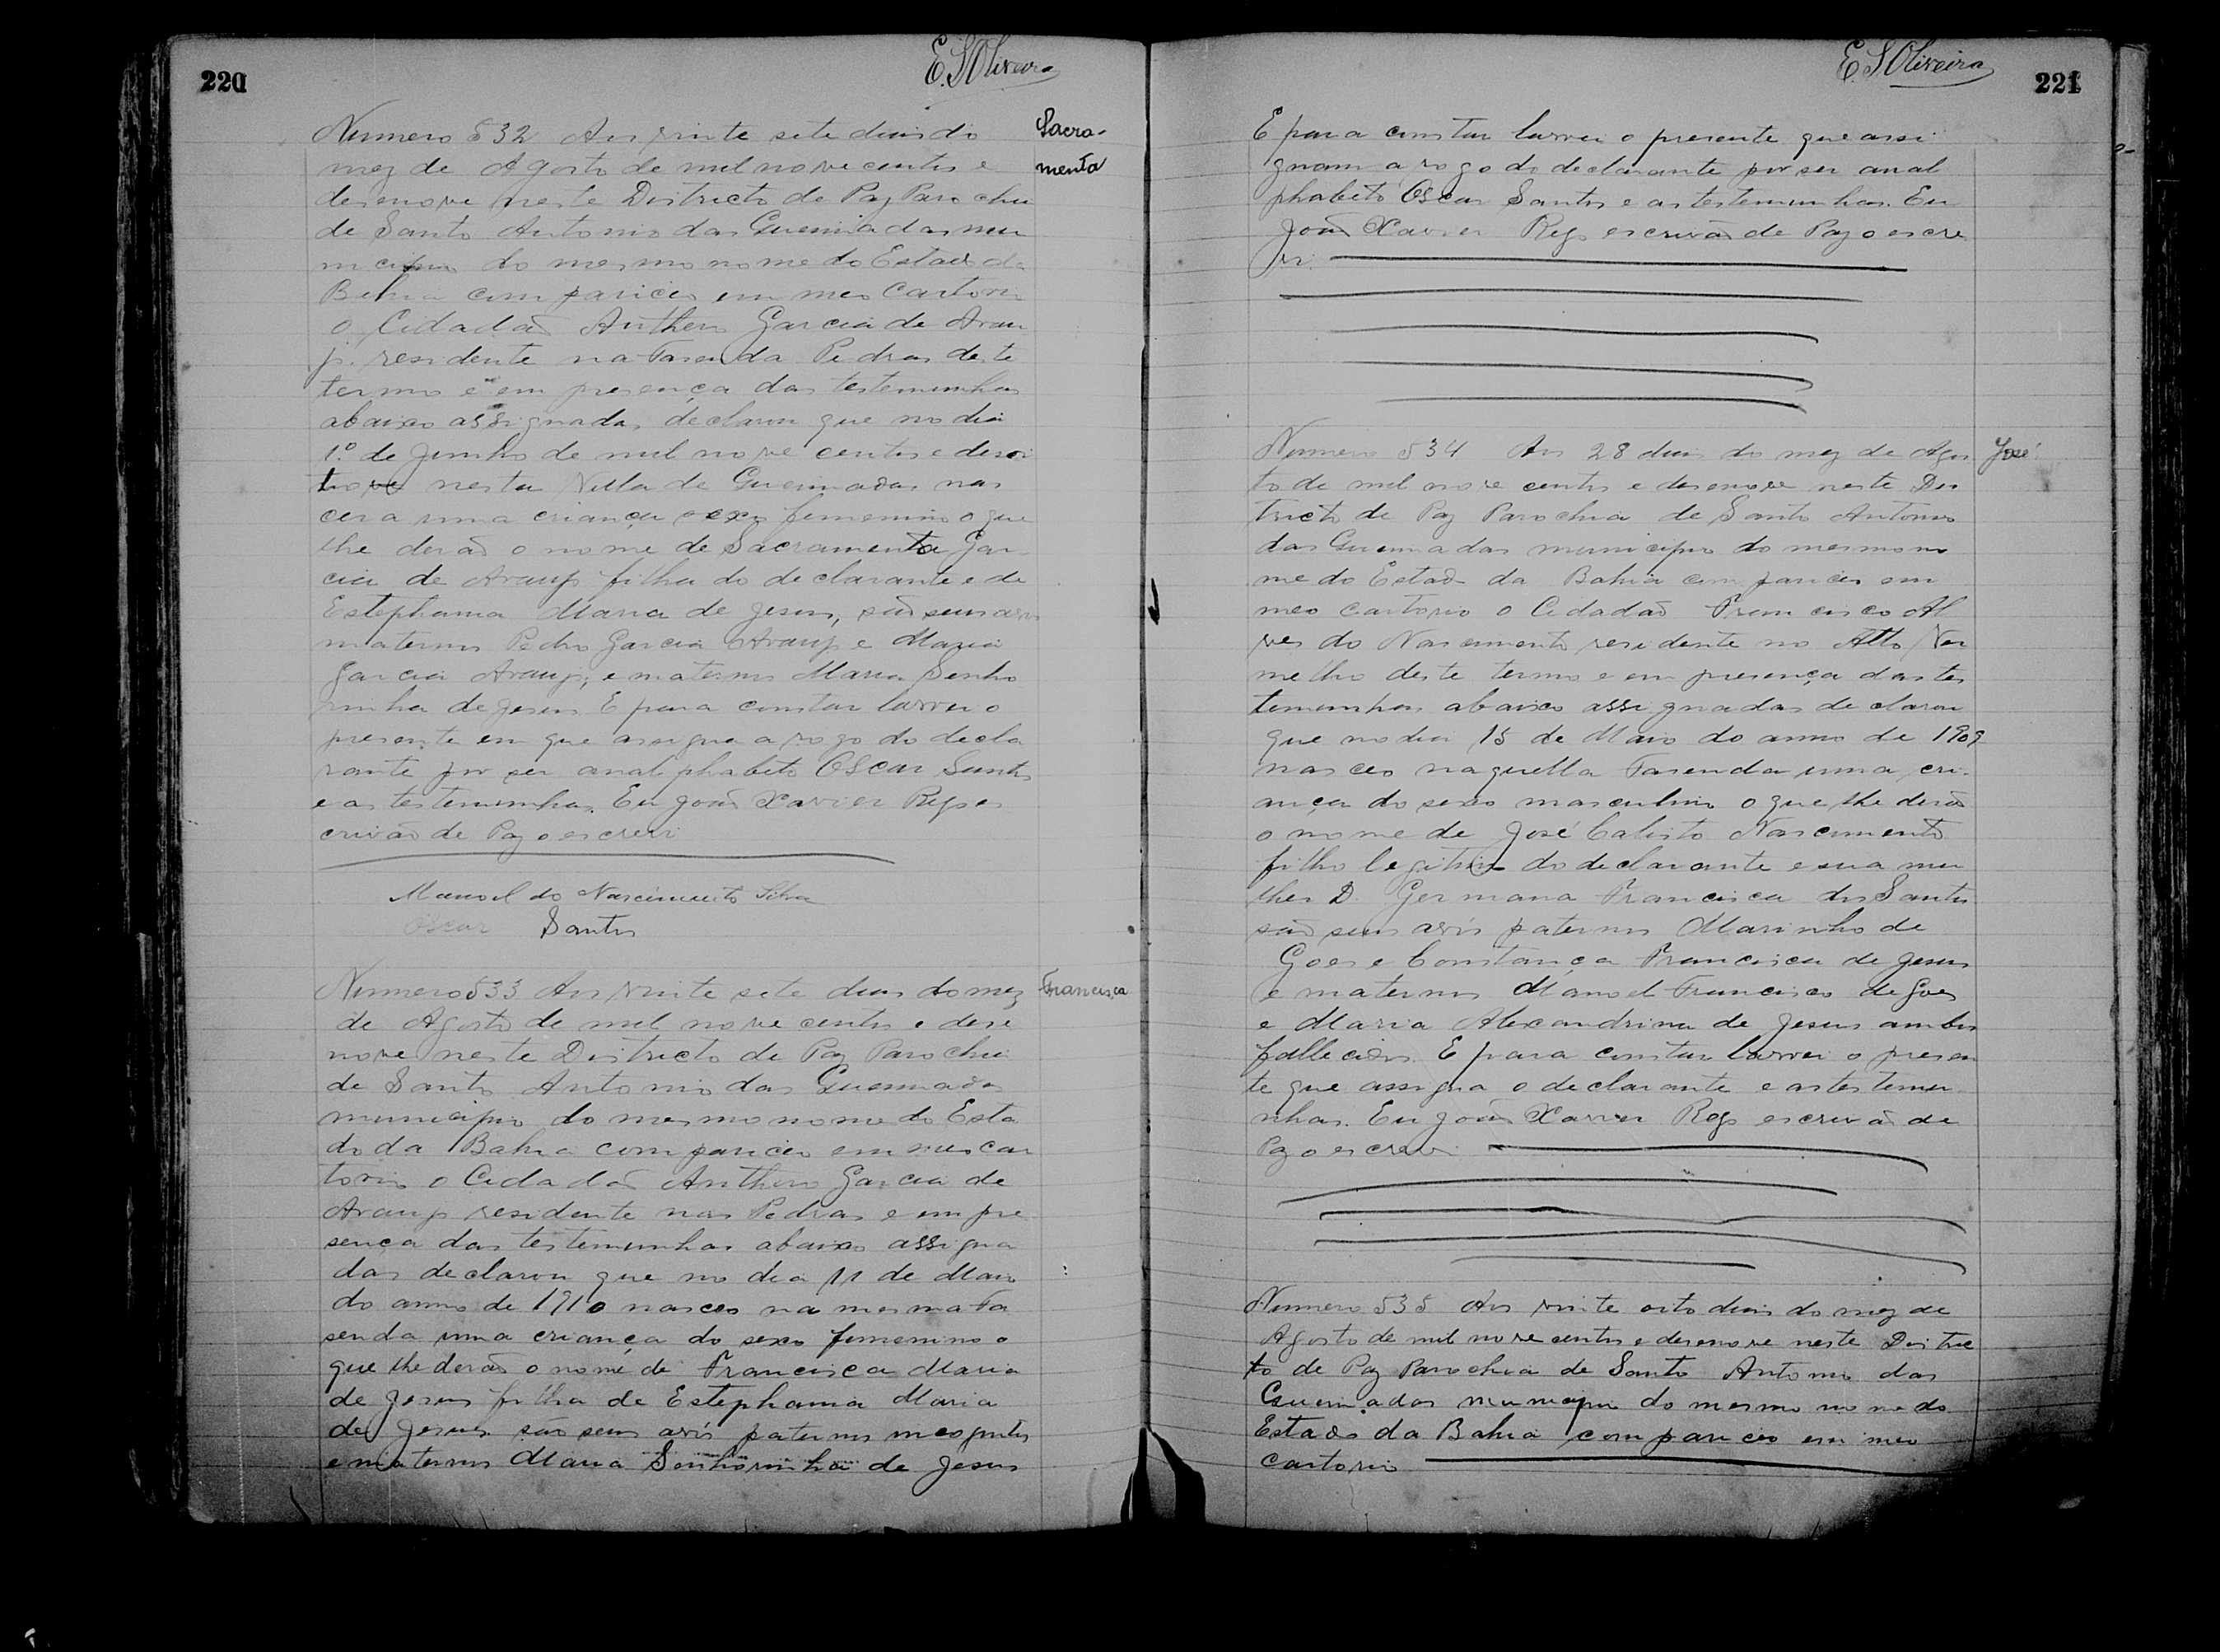 220
E. S Oliveira
Numero 532 Aos vinte sete dias do
mez de Agosto de mil nove centos e
desenove neste Districto de Paz Parochia
de Santo Antonio das Queimadas mu
nicipio do mesmo nome do Estado da
Bahia compariceu em meo Cartorio
o Cidadão Anthero Garcia de Arau
jo residente na Fasenda Pedras deste
termo e em presença das testemunhas
abaixo assignadas, declarou que no dia
1.º de Junho de mil nove centos e
nesta Villa de Queimadas nas
cera uma criança sexo femenino o que
lhe derão o nome de Sacramenta Gar
cia de Araujo filha do declarante e de
Estephania Maria de Jesus, são seus avós
maternos Pedro Garcia Araujo e Maria
Garcia Araujo, e maternos Maria Senho
rinha de Jesus. E para constar lavrei o
presente em que assigna a rogo do decla
rante por ser analphabeto Oscar Santos
e as testemunhas. Eu João Xavier Rego es
crivão de Paz o escrevi
Manoel do Nascimento Silva
Oscar Santos
Sacra-
menta
Numero 533 Aos vinte sete dias do mez
de Agosto de mil nove centos e dese
nove neste Districto de Paz Parochia
de Santo Antonio das Queimadas
municipio do mesmo nome do Esta
do da Bahia compariceu em meo car
torio o Cidadão Anthero Garcia de
Araujo residente nas Pedras e em pre
sença das testemunhas abaixo assigna
das declarou que no dia 11 de Maio
do anno de 1910 nasceo na mesma Fa
senda uma criança do sexo femenino o
que lhe derão o nome de Francisca Maria
de Jesus filha de Estephania Maria
de Jesus são seus avós paternos incognitos
e maternos Maria Senhorinha de Jesus
Francisca
E. S Oliveira
221
E para constar lavrei o presente que assi
gnam a rogo do declarante por ser anal
phabeto Oscar Santos e as testemunhas. Eu
João Xavier Rego escrivão de Paz o escre
vi.
Numero 534 Aos 28 dias do mez de Agos
to de mil nove centos e desenove neste Dis
tricto de Paz Parochia de Santo Antonio
das Queimadas municipio do mesmo no
me do Estado da Bahia compariceu em
meo cartorio o Cidadão Francisco Al
ves do Nascimento residente no Alto Ver
melho deste termo e em presença das tes
temunhas abaixo assignadas declarou
que no dia 15 de Maio do anno de 1909
nasceo naquella Fasenda uma cri
ança do sexo masculino o que lhe derão
o nome de José Calisto Nascimento
filho legitimo do declarante e sua mu
lher D. Germana Francisca dos Santos
são seus avós paternos Marinho de
Goes e Constança Francisca de Jesus
e maternos Manoel Francisco de Goes
e Maria Alexandrina de Jesus ambos
fallecidos. E para constar lavrei o presen
te que assigna o declarante e as testemu
nhas. Eu João Xavier Rego escrivão de
Paz o escrevi
José
Numero 535 Aos vinte oito dias do mez de
Agosto de mil nove centos e desenove neste Distric
to de Paz Parochia de Santo Antonio das
Queimadas municipio do mesmo nome do
Estado da Bahia compariceo em meo
cartorio